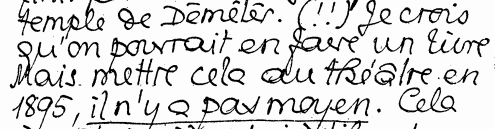 temple de Dēmētēr. (!!) Je crois
qu'on pourrait en faire un livre
Mais mettre cela au théâtre en
1895, il n'y a pas moyen. Cela